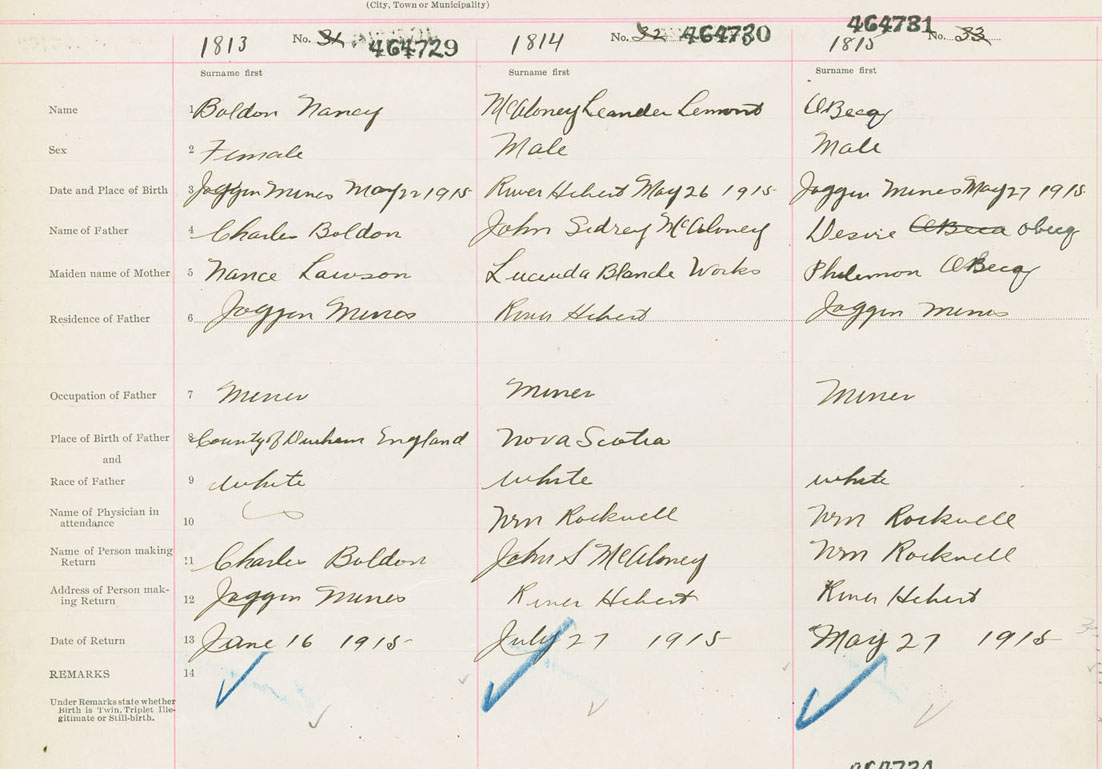 (City, Town or Municipality)
1813 No. 31 464729 1814 No. 32 464730 1815 464731 No. 33
Surname first Surname first Surname first
Name 1 Boldon Nancy McAloney Leander Lemont OBecq
Sex 2 Female Male Male
Date and Place of Birth 3 Joggin Mines May 22 1915 River Hebert May 26 1915 Joggin Mines May 27 1915
Name of Father 4 Charles Boldon John Sidney McAloney Desire OBecq Obecq
Maiden name of Mother 5 Nance Lawson Lucinda Blanche Works Philemon OBecq
Residence of Father 6 Joggin Mines River Hebert Joggin Mines
Occupation of Father 7 Miner Miner Miner
Place of Birth of Father 8 County of Durham England Nova Scotia
and
Race of Father 9 White White White
Name of Physician in
attendance 10 Wm Rockwell Wm Rockwell
Name of Person making
Return 11 Charles Boldon John S McAloney Wm Rockwell
Address of Person mak-
ing Return 12 Joggin Mines River Hebert River Hebert
Date of Return 13 June 16 1915 July 27 1915 May 27 1915
REMARKS 14
Under Remarks state whether
Birth is Twin, Triplet Ille-
gitimate or Still-birth.